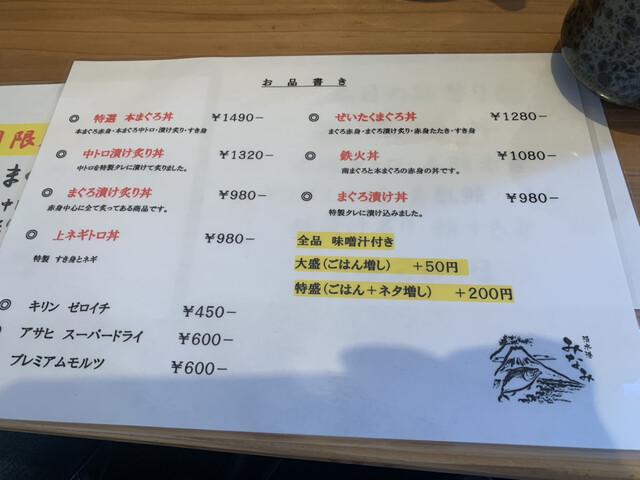 お品書き
◎ 特選 本まぐろ丼 ￥1490−
本まぐろ赤身・本まぐろ中トロ・漬け炙り・すき身
◎ 中トロ漬け炙り丼 ￥1320−
中トロを特製タレに漬けて炙りました。
◎ まぐろ漬け炙り丼 ￥980−
赤身中心に全て炙ってある商品です。
◎ 上ネギトロ丼 ￥980−
特製 すき身とネギ
◎ キリン ゼロイチ ￥450−
アサヒ スーパードライ ￥600−
プレミアムモルツ ￥600−
◎ ぜいたくまぐろ丼 ￥1280−
まぐろ赤身・まぐろ漬け炙り・赤身たたき・すき身
◎ 鉄火丼 ￥1080−
南まぐろと本まぐろの赤身の丼です。
◎ まぐろ漬け丼 ￥980−
特製タレに漬け込みました。
全品 味噌汁付き
大盛（ごはん増し） ＋50円
特盛（ごはん＋ネタ増し） ＋200円
清水港
みなみ
限
ま
中